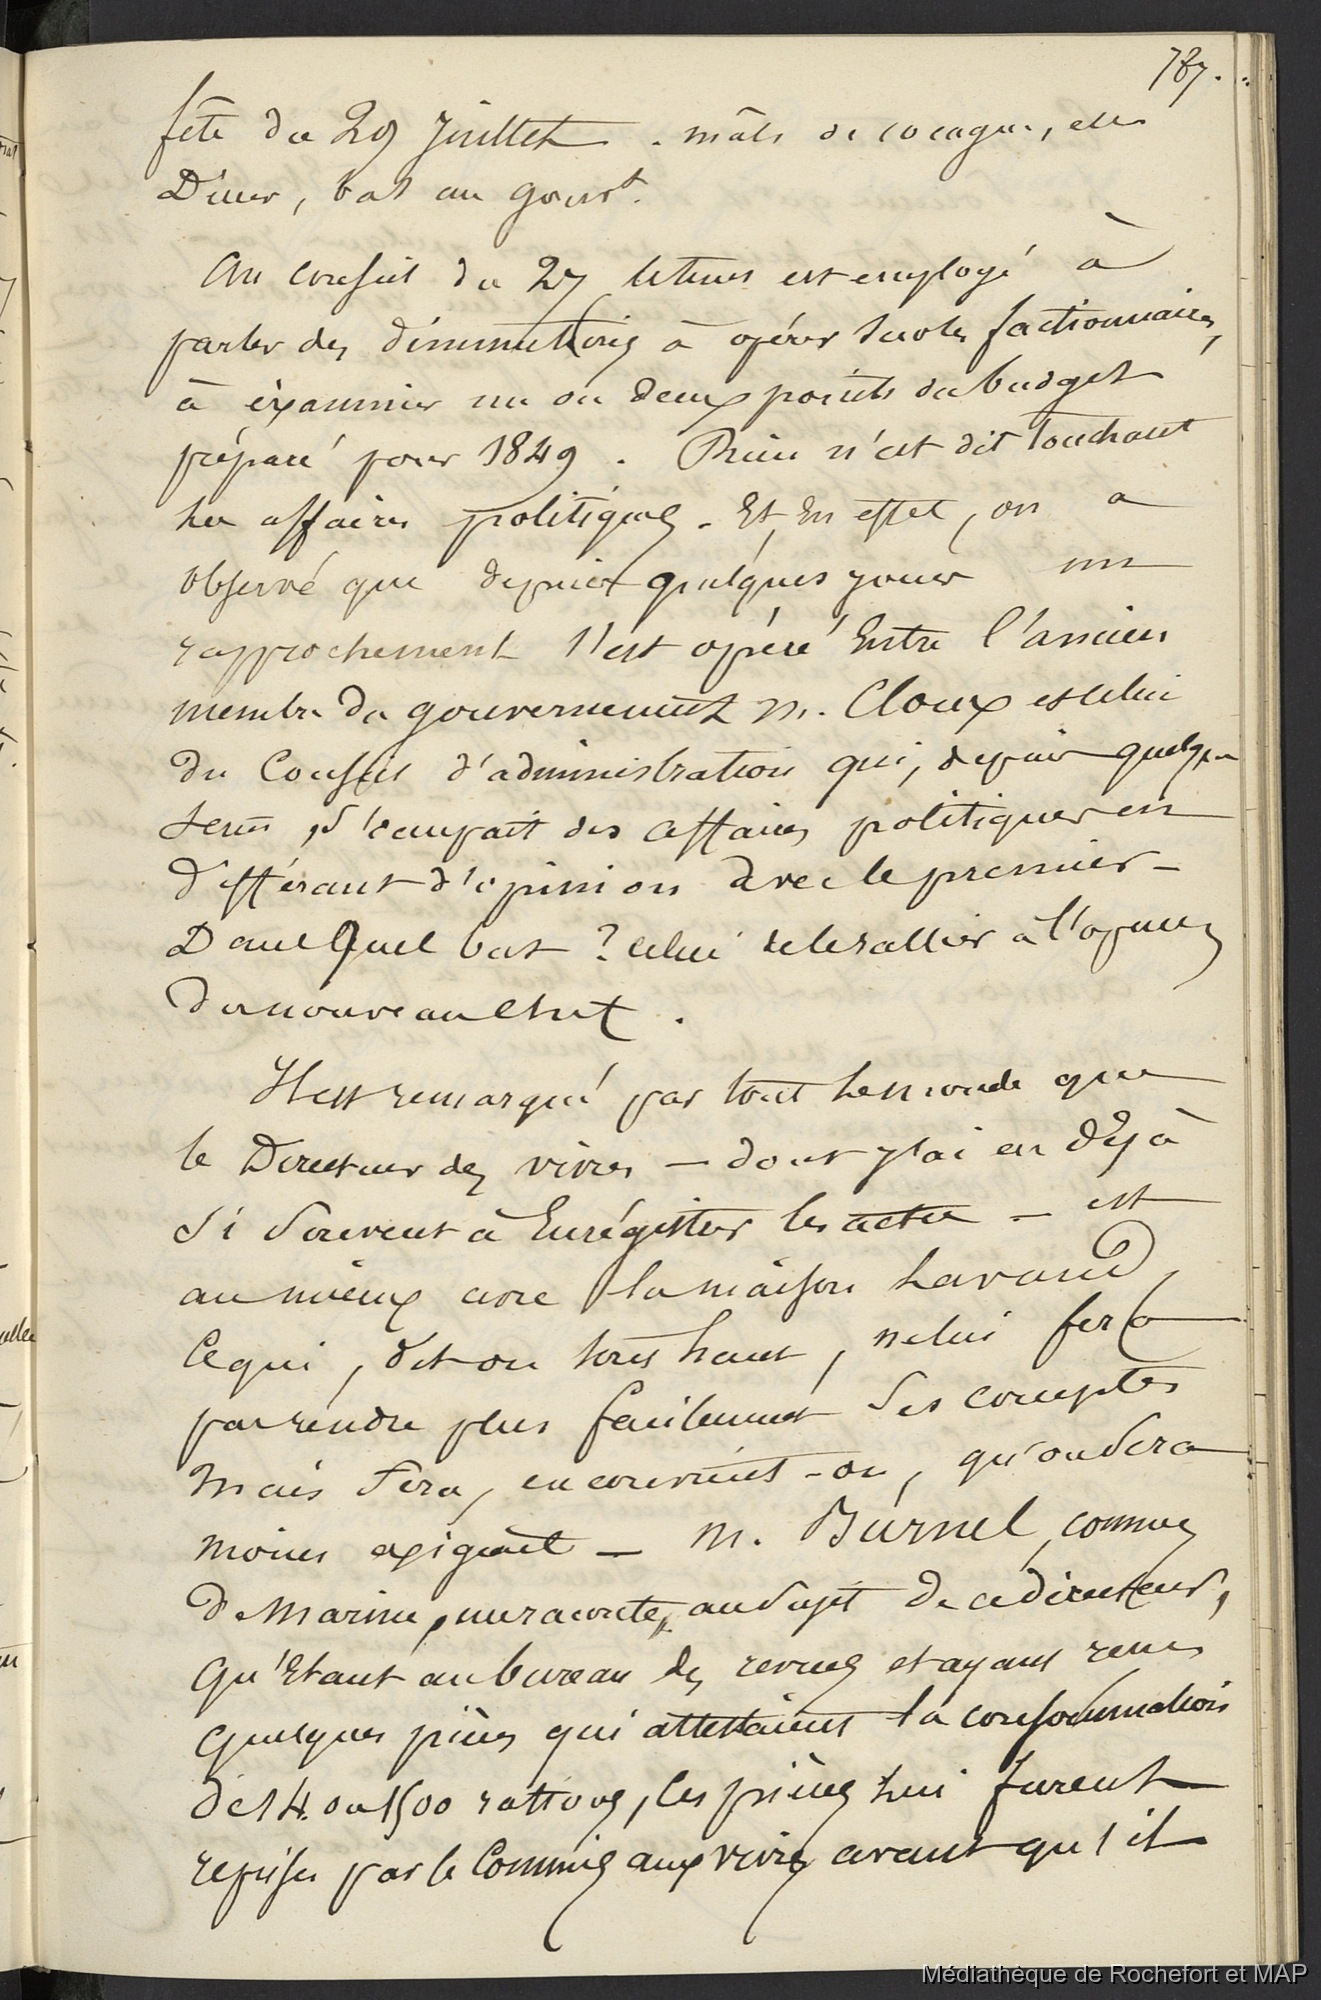 787.
fête du 29 Juillet. mâts de cocagne, etc
Diner, bal au gouvt.
Au conseil du 27 le tems est employé à
parler des diminutions à opérer sur les factionnaires,
à examiner un ou deux points du budget
préparé pour 1849. Rien n'est dit touchant
les affaires politiques. Et, en effet, on a
observé que depuis quelques jours un
rapprochement s'est opéré entre l'ancien
membre du gouvernement M. Cloux et celui
du Conseil d'administration qui, depuis quelque
tems, s'occupait des affaires politiques en
différant d'opinion avec le premier -
Dans quel but ? celui de se rallier à l'opinion
du nouveau chef.
Il est remarqué par tout le monde que
le Directeur des vivres - dont j'ai eu déjà
si souvent à Enrégistrer les actes - est
au mieux avec la maison Lavaud,
Ce qui, dit on tout haut, ne lui fera
pas rendre plus facilement ses comptes
Mais fera, en convient-on, qu'on sera
moins exigeant - M. Burnel, commis
de Marine, me raconte, au sujet de ce directeur,
qu'Etant au bureau des revues et ayant remis
quelques pièces qui attestaient la consommation
de 14 ou 1500 rations, les pièces lui furent
reprises par le Commis aux vivres avant qu'il
Médiathèque de Rochefort et MAP